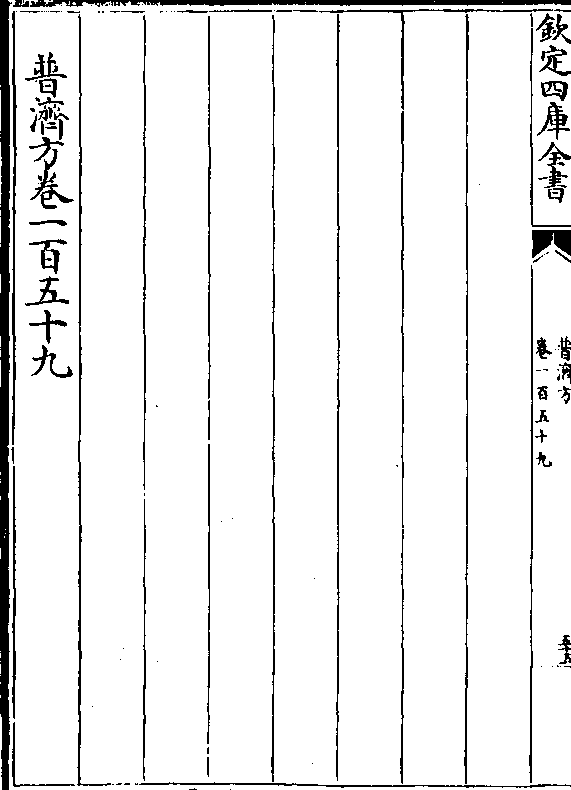 欽定四庫全書
普濟方
卷一百五十九
普濟方卷一百五十九